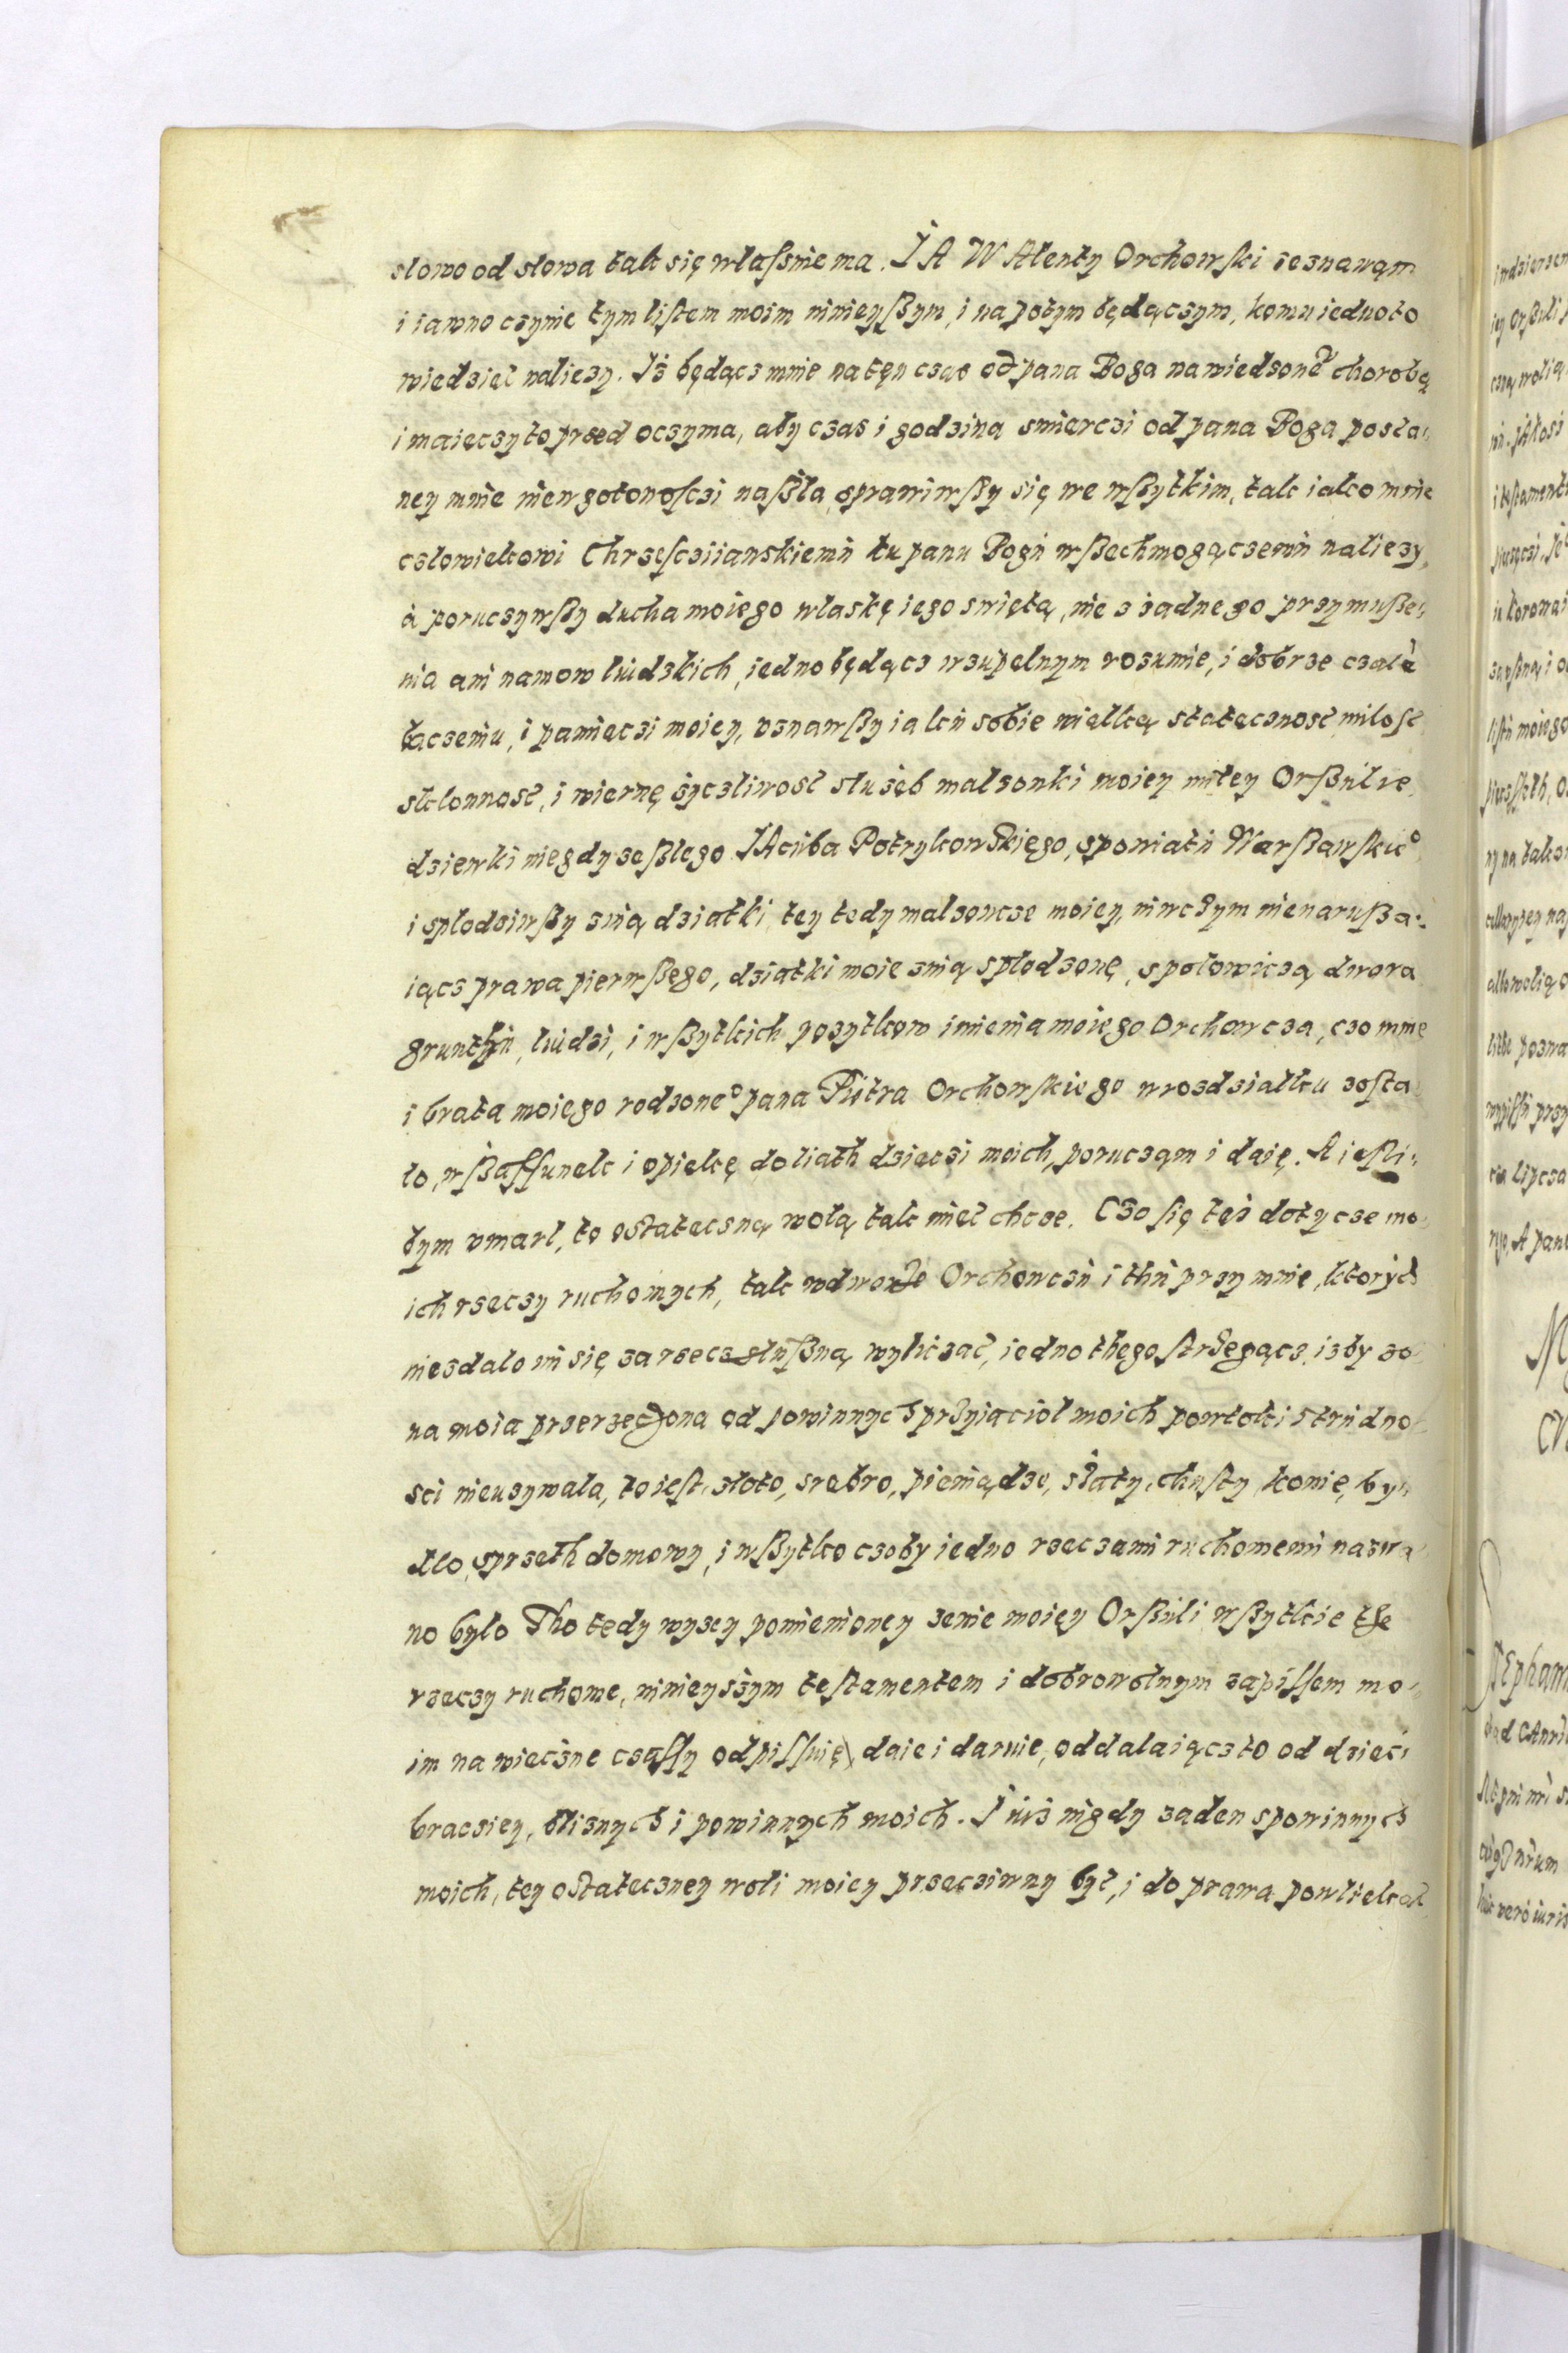 słowo od słowa tak się właſsnie ma. JA WAlenty Orchowſki zeznawąm
i iawno czynie tym liſtem moim ninieyſzym, i na potym będączym, komu iednoto
wiedzieć naliezy. Iż będącz mnie natęn czas od pana Boga nawiedzoné chorobą
i maięczy to przed oczyma, aby czas i godzina smierczi od pana Boga posła„
ney mnie niewgotowoſczi naſzła, sprawiwſzy się we wſzytkim, tak iako mnie
człowiekowi Chrzeſcziianskiemu ku panu Bogu wſzechmogączemu naliezy,
à poruczywſzy ducha moiego właskę iego swiętą, nie z żadnego przymuſze„
nia ani namow liudzkich, iedno będącz wzupełnym rozumie, i dobrze czałe
 i pamięczi moiey, vznawſzy iako sobie wielką stateczność miłoſć
skłonność, i wiernę życzliwość służęb małżonki moiey miłey Orſzulie,
dziewki niegdy zeſzłego JAcuba Potrykowskięgo, spowiatu Warſzawſkie°
i spłodziwſzy znią dziatki, tey tedy małżoncze moiey, niwczym nienaruſza„
iącz prawa pierwſzęgo, dziatki moie znią spłodzonę, społowiczą dwora
grunthu, liudzi, i wſzytkich pozytkow imienia moiego Orchowcza, czo mnie
i brata moięgo rodzone° pana Piotra Orchowſkiego wrozdziałku zoſta
ło, wſzaffunek i opiekę do liath dzieczi moich, porucząm i daię. A ieſli„
bym vmarł, to ostateczną wolą tak mieć chcze. Czo się też dotycze mo„
ich rzeczy ruchomych, tak wdworze Orchowczu i thu przy mnie, których
niezdało mi się zarzecz słuſzną wyliczać, iedno thego ſtrzegącz, izby żo„
na moia przerzeczona od powinnych prżyiaciol moich powłoki i trudno„
sci nieuzywała, to ieſt, złoto, srebro, pieniądze, szaty, chuſty, konie, by„
dło, sprzeth domowy, i wſzytko czoby iedno rzeczami ruchomemi nazwa„
no było Tho tedy wyzey pomienioney zenie moięy Orſzuli wſzytkie the
rzeczy ruchome, ninieyszym teſtamentem i dobrowolnym zapiſſem mo„
im na wieczne czaſſy odpiſſuię, daie i daruie, oddalaiącz to od dzieci
braczięy, blisnych i powinnych moich. I iuż nigdy zaden spowinnych
moich, tey ostateczney woli moiey przeciwny być, i do prawa powliekać